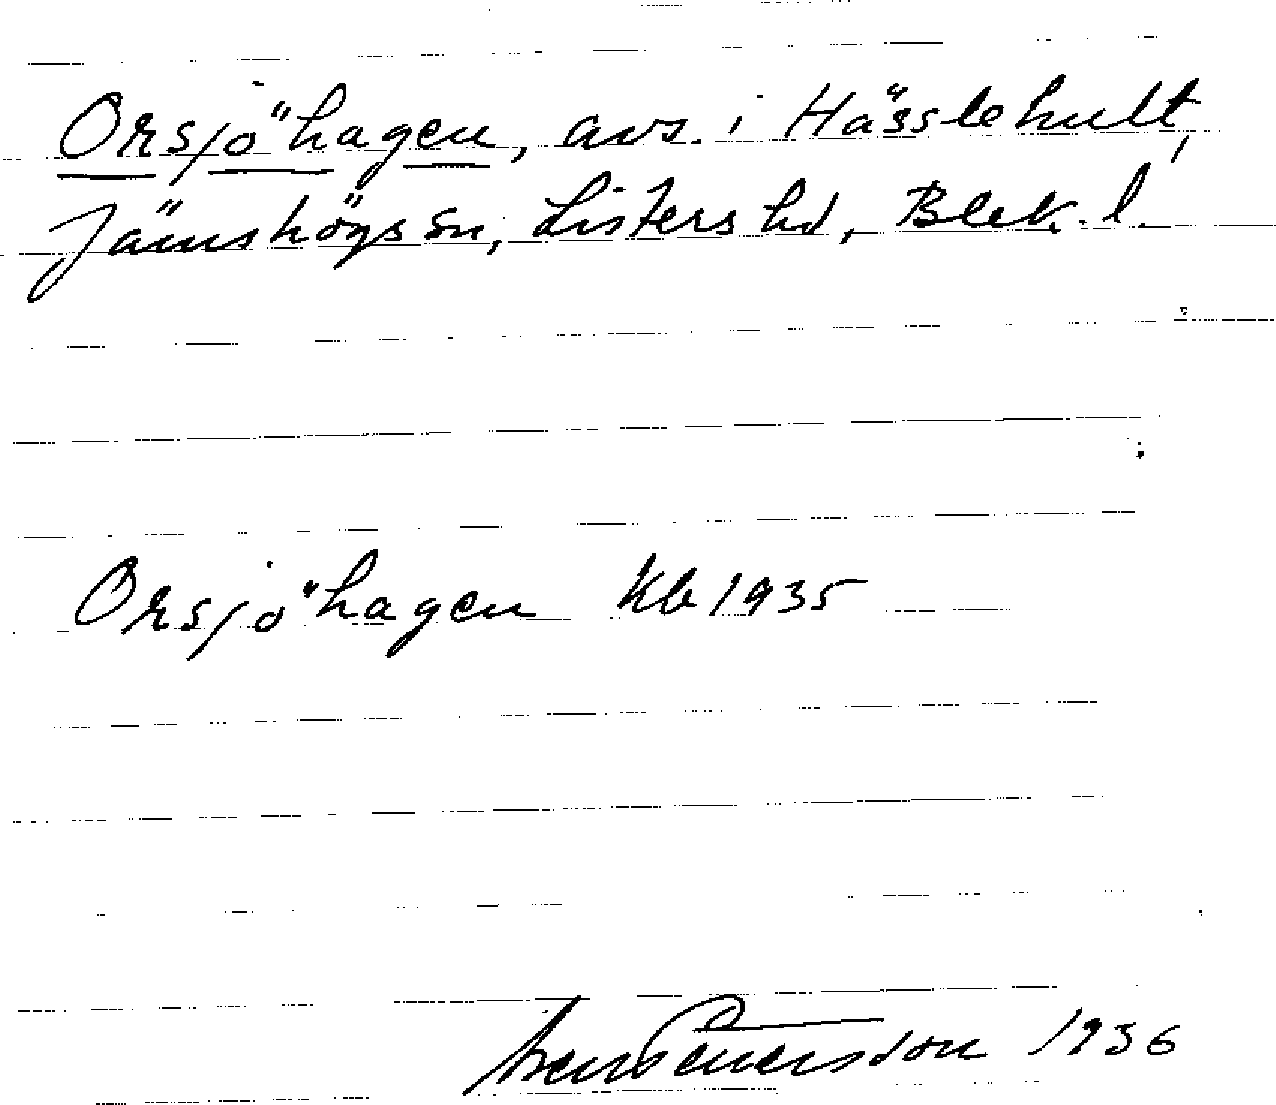 Orsjöhagen, avs. i Hässlehult,
Jämshögs sn, Listers hd, Blek. l.
Orsjöhagen Kb 1935
1936